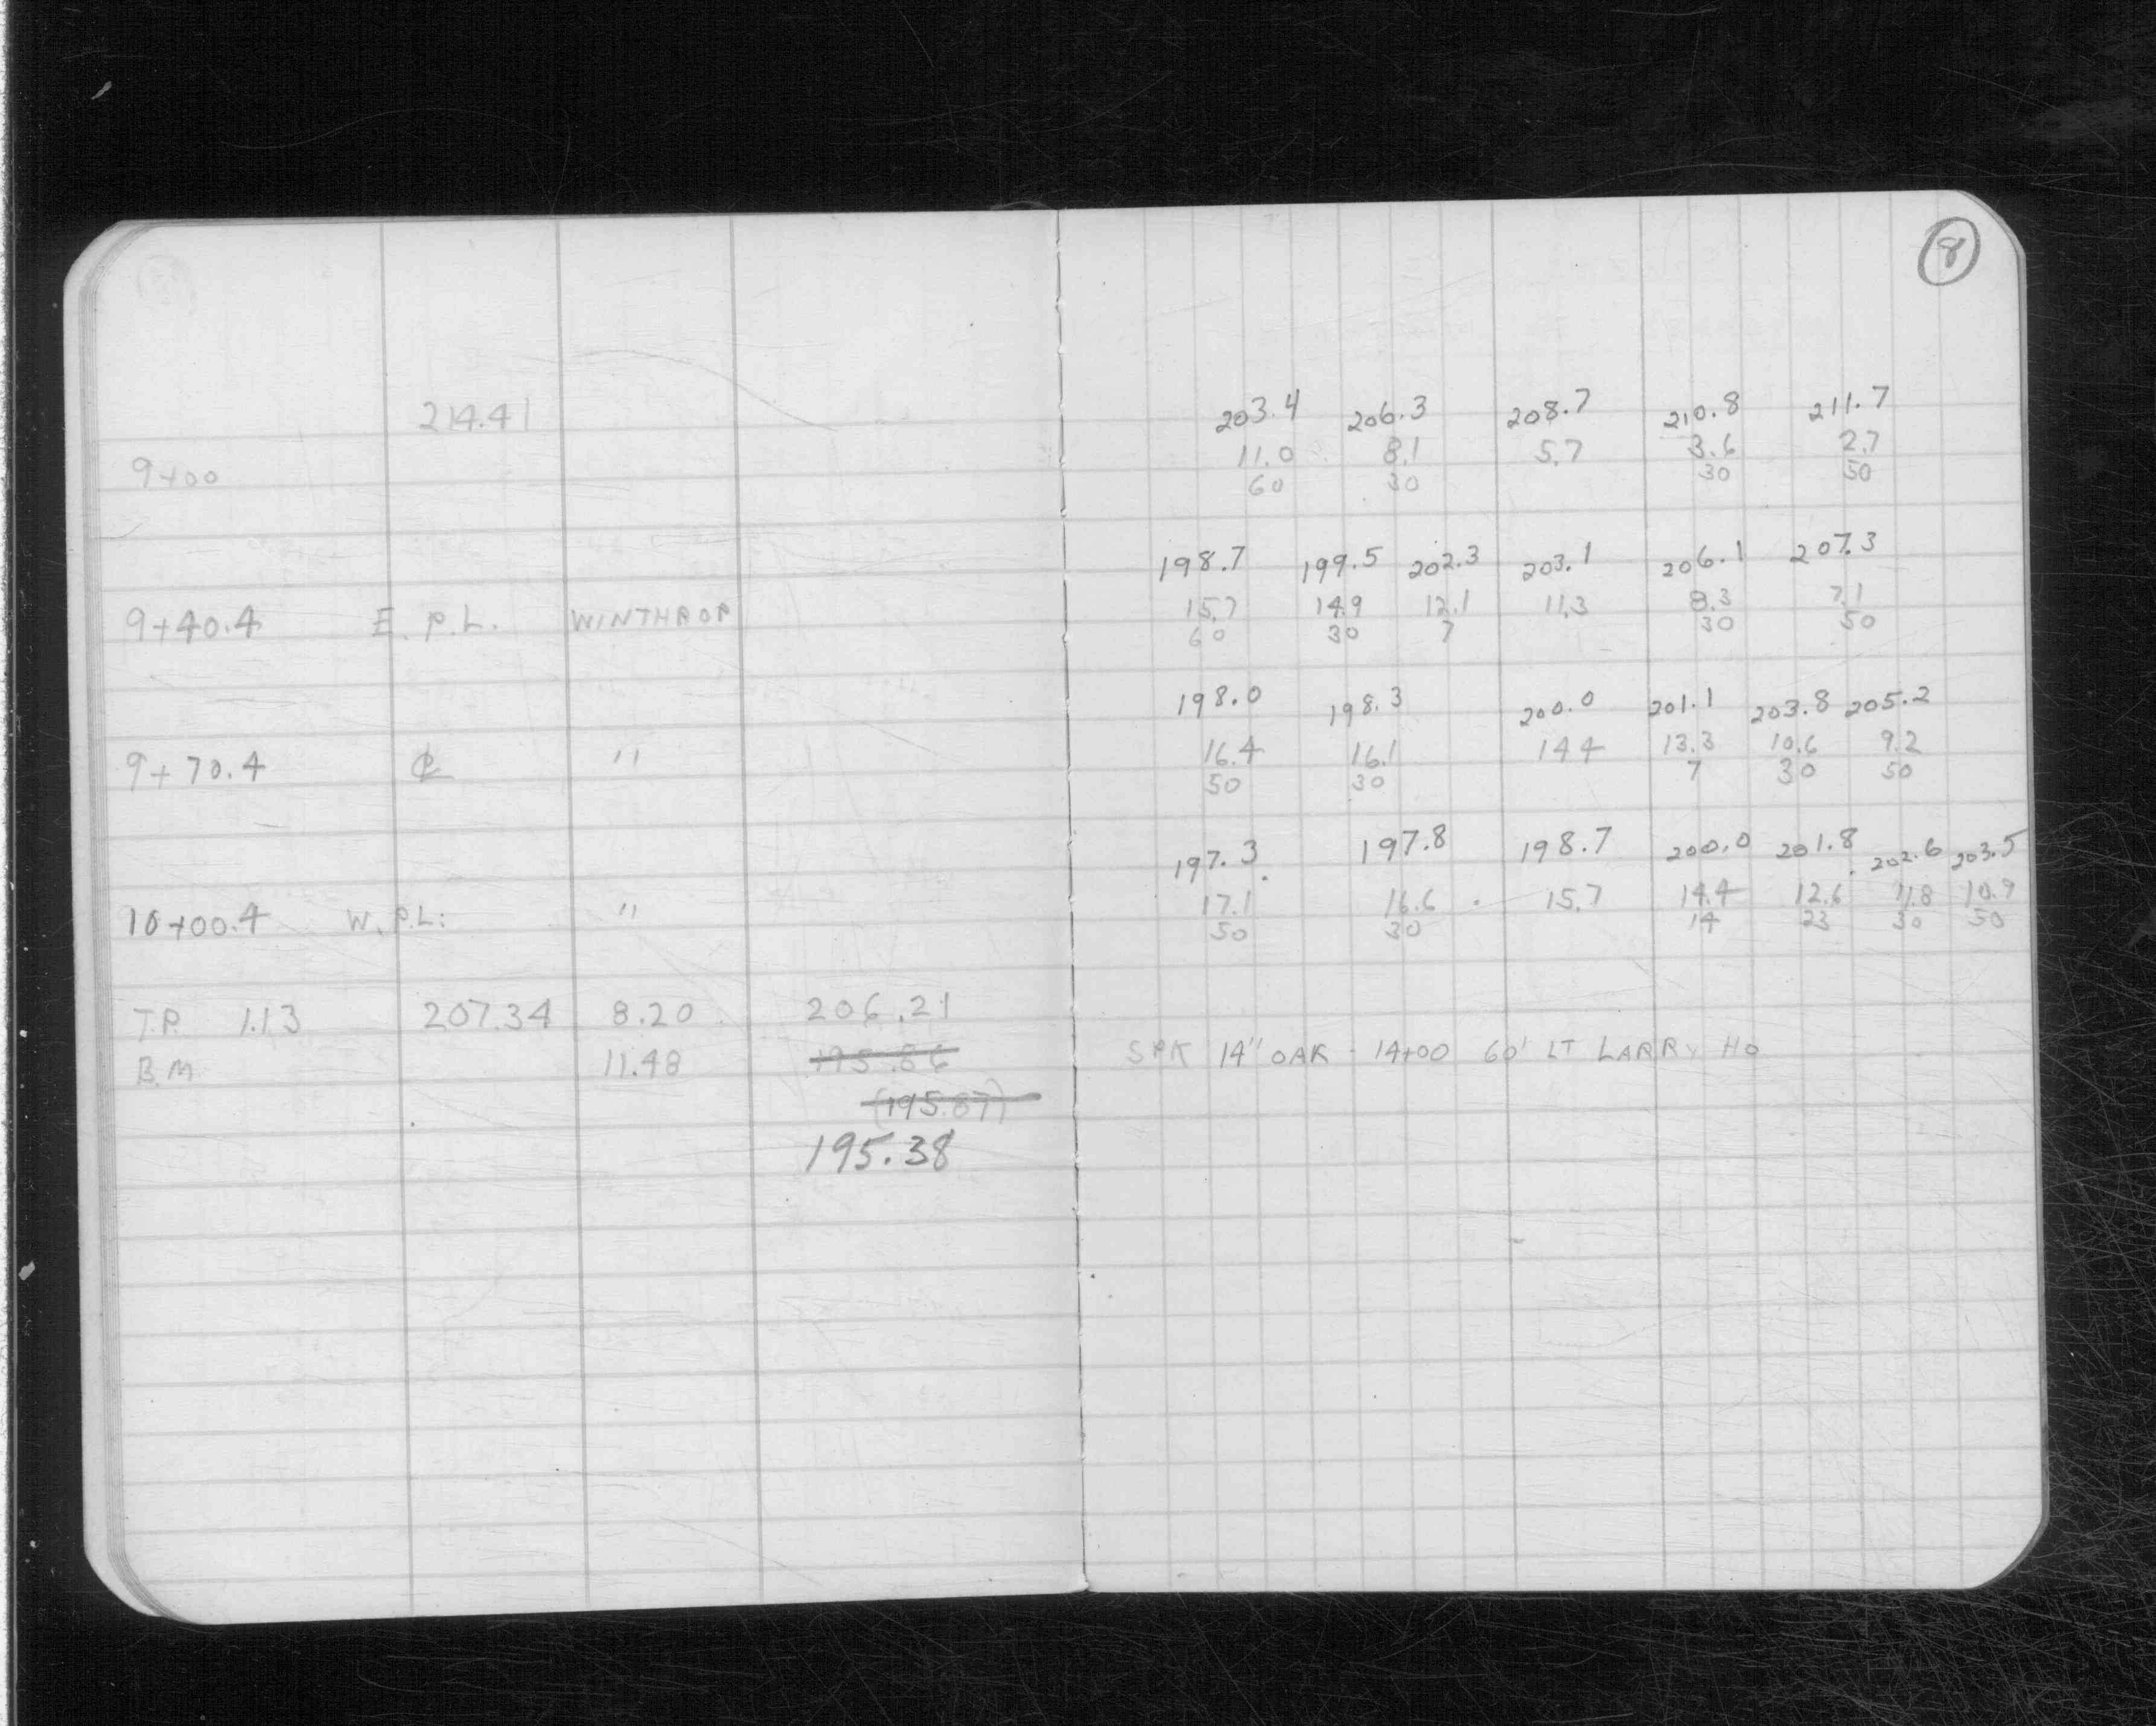 8
214.41
203.4 206.3 208.7 210.8 211.7
11.0 8.1 5.7 3.6 2.7
9+00
60 30 30 50
198.7 199.5 202.3 203.1 206.1 207.3
9+40.4 E. P.L. WINTHROP
15.7 14.9 12.1 11.3 8.3 7.1
60 30 7 30 50
198.0 198.3 200.0 201.1 203.8 205.2
9+70.4 ℄ "
16.4 16.1 14.4 13.3 10.6 9.2
50 30 7 30 50
197.3 197.8 198.7 200.0 201.8 202.6 203.5
10+00.4 W. P.L. "
17.1 16.6 15.7 14.4 12.6 11.8 10.9
50 30 14 23 30 50
T.P. 1.13 207.34 8.20 206.21
B.M. 11.48 195.86
SPK 14" OAK - 14+00 60' LT LARRY HO
(195.87)
195.38